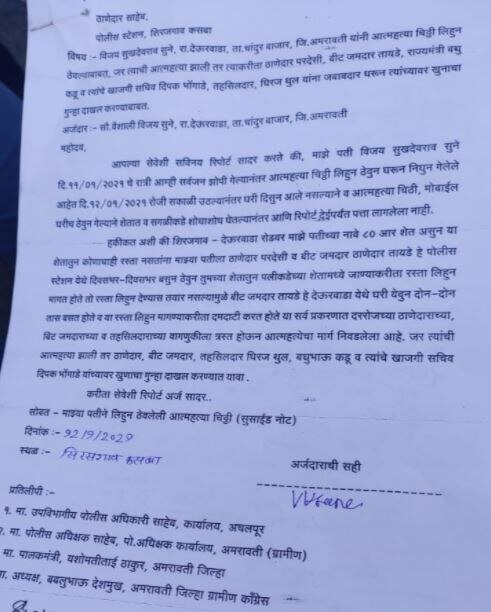 ठाणेदार साहेब,
पोलीस स्टेशन, सिरजगाव कसबा
विषय :- विजय सुखदेवराव सुने, रा.देऊरवाडा, ता.चांदुर बाजार, जि.अमरावती यांनी आत्महत्या चिठ्ठी लिहुन
ठेवल्याबाबत. जर त्याची आत्महत्या झाली तर त्याकरीता ठाणेदार परदेसी, बीट जमदार तायडे, राज्यमंत्री बच्चु
कडू व त्यांचे खाजगी सचिव दिपक भोंगाडे, तहसिलदार, धिरज थुल यांना जबाबदार धरून त्यांच्यावर खुनाचा
गुन्हा दाखल करण्याबाबत.
अर्जदार :- सौ.वैशाली विजय सुने, रा.देऊरवाडा, ता.चांदुर बाजार, जि.अमरावती
महोदय,
आपल्या सेवेशी सविनय रिपोर्ट सादर करते की, माझे पती विजय सुखदेवराव सुने
दि.११/०१/२०२१ चे रात्री आम्ही सर्वजन झोपी गेल्यानंतर आत्महत्या चिठ्ठी लिहुन ठेवुन घरून निघुन गेलेले
आहेत दि.१२/०१/२०२१ रोजी सकाळी उठल्यानंतर घरी दिसुन आले नसल्याने व आत्महत्या चिठी, मोबाईल
घरीच ठेवुन गेल्याने शेतात व सगळीकडे शोधाशोध घेतल्यानंतर आणि रिपोर्ट देईपर्यंत पत्ता लागलेला नाही.
हकीकत अशी की शिरजगाव - देऊरवाडा रोडवर माझे पतीचे नावे ८० आर शेत असुन या
शेतातुन कोणाचाही रस्ता नसतांना माझ्या पतीला ठाणेदार परदेसी व बीट जमदार ठाणेदार तायडे हे पोलीस
स्टेशन येथे दिवसभर-दिवसभर बसुन ठेवुन तुमच्या शेतातुन पलीकडेच्या शेतामध्ये जाण्याकरीता रस्ता लिहुन
मागत होते तो रस्ता लिहुन देण्यास तयार नसल्यामुळे बीट जमदार तायडे हे देऊरवाडा येथे घरी येवुन दोन-दोन
तास बसत होते व या रस्ता लिहुन मागण्याकरीता दमदाटी करत होते या सर्व प्रकरणात दररोजच्या ठाणेदाराच्या,
बिट जमदाराच्या व तहसिलदाराच्या वागणुकीला त्रस्त होऊन आत्महत्येचा मार्ग निवडलेला आहे. जर त्यांची
आत्महत्या झाली तर ठाणेदार, बीट जमदार, तहसिलदार धिरज थुल, बच्चुभाऊ कडू व त्यांचे खाजगी सचिव
दिपक भोंगाडे यांच्यावर खुणाचा गुन्हा दाखल करण्यात यावा .
करीता सेवेशी रिपोर्ट अर्ज सादर..
सोबत - माझ्या पतीने लिहुन ठेवलेली आत्महत्या चिठ्ठी (सुसाईड नोट)
दिनांक :- १२/१/२०२१
स्थळ :- सिरसगाव कसबा
अर्जदाराची सही
प्रतिलीपी :-
१. मा. उपविभागीय पोलीस अधिकारी साहेब, कार्यालय, अचलपूर
२. मा. पोलीस अधिक्षक साहेब, पो.अधिक्षक कार्यालय, अमरावती (ग्रामीण)
मा. पालकमंत्री, यशोमतीताई ठाकुर, अमरावती जिल्हा
मा. अध्यक्ष, बबलुभाऊ देशमुख, अमरावती जिल्हा ग्रामीण काँग्रेस